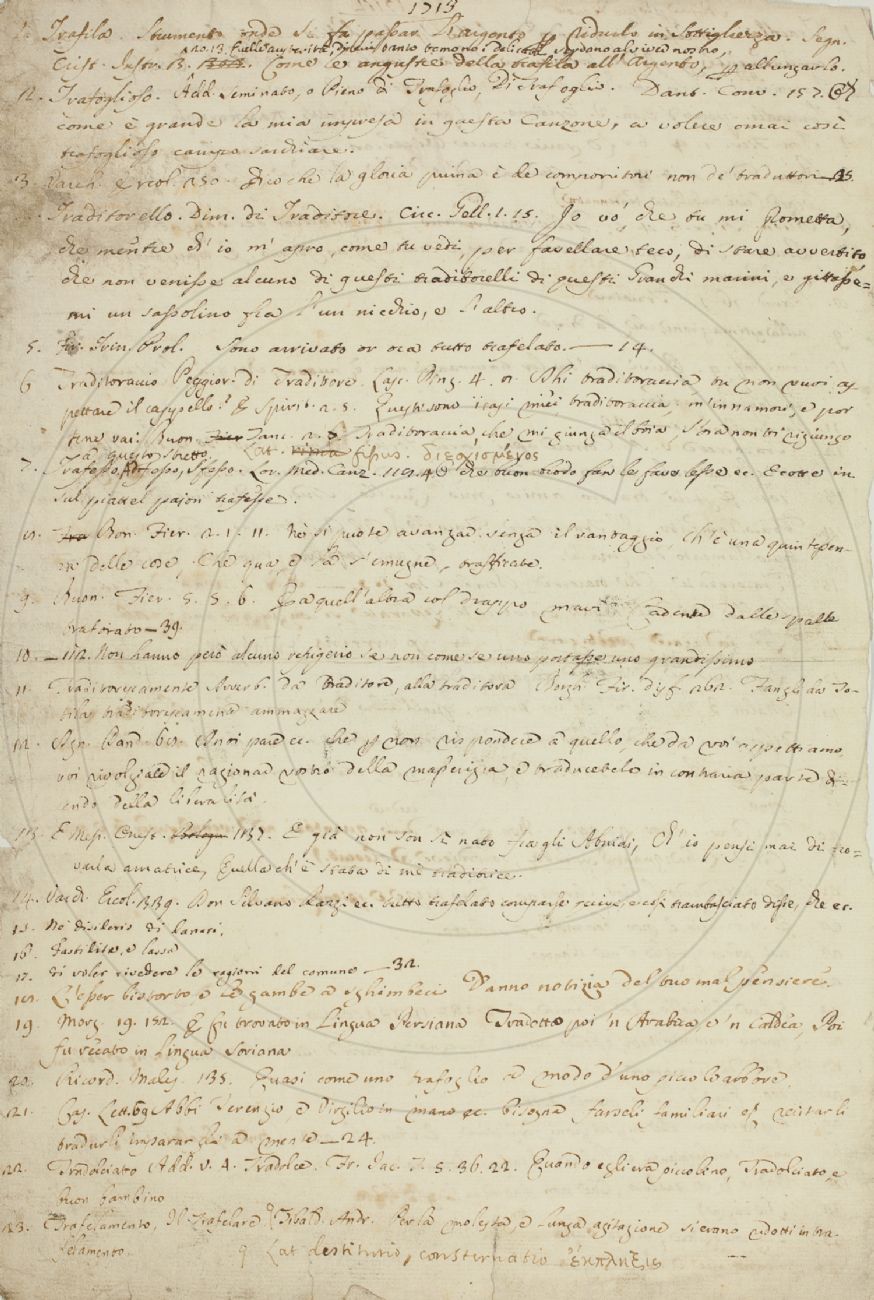 1713
Trafila. Strumento onde si fa passar l'argento per ridurlo in Sottigliezza. Segn.
Crist. Instr. 13. Come le angustie della trafila all'Argento, per allungarlo.
12. Trafoglioso. Add. Seminato, o Pieno di Trafoglio, Di Trafoglio. Dant. Conv. 157.
come è grande la mia impresa in questa Canzone, a volere omai così
trafoglioso campo sarchiare.
3. Varch. Ercol. 250. Dico che la gloria prima è de compositori non de' traduttori
Traditorello. Dim. di Traditore. Circ. Gell. 1. 15. Io vo', che tu mi prometta,
che mentre ch'io m'apro, come tu vedi, per favellare teco, di stare avvertito
che non venisse alcuno di questi traditorelli di questi Granchi marini, e gittasse=
mi un sassolino fra l'un nicchio, e l'altro.
5. Fir. Trin. Prol. Sono arrivato or ora tutto trafelato. — 14.
6 Traditoraccio Peggior. di Traditore. Lasc. Pinz. 4. Ahi traditoraccia tu non vuoi as
pettare il cappello? E Spirit. 2. 5. Questi sono i casi miei traditoraccia m'innamori, e poi
te ne vai. Buon. Tanc. 2. 5. Traditoraccia, che mi giunga il boia, s'ora non ti raggiungo
a questo stretto. Lat. διεσχισμένος
7. Trafesso, Fesso. Lor. Med. Canz. che buon brodo fan le fave lesse ec. E cotte in
sul piattel paion trafesse.
Bon. Fier. 2. 1. 11. Nè si puote avanzar senza il vantaggio, Ch'è una quintessen-
za delle cose, Che qua, e là s'emugne, trafficate.
9. Buon. Fier. 5. 5. 6. Ha quell'altra col drappo mavì Cadente dalle spalle
traforato — 39.
10. — 112. Non hanno però alcuno refigerio se non come se uno portasse uno grandissimo
11 Traditorescamente Avverb. Da Traditore, alla traditora Borgh. Fir. disf. 262. Fangli da To-
tila traditorescamente ammazzare
12. Agn. Pand. A noi pare ec. che per non rispondere a quello, che da voi aspettiamo
voi rivolgiate il ragionar vostro della masserizia, e traducetelo in contraria parte di-
cendo della liberalità.
113. E già non son sì nato fra gli Abruzi, Ch'io pensi mai di tro-
varla amatrice, Quella ch'è stata di me traditrice.
14. Varch. Ercol. 339. Don Silvano Razzi ec. tutto trafelato comparse quivi, e così trambasciato disse, che ec.
15. Nè disiderio di danari.
16. Fastilite, e lasso
17. di voler rivedere le ragioni del comune — 32.
L'esser bistorto, e le gambe a sghimbeci Danno notizia del tuo mal pensiere.
19. Morg. 19. 152. E fu trovato in Lingua Persiana Tradotto poi 'n Arabica, e 'n Caldea, Poi
fu recato in Lingua Soriana
20. Ricord. Malesp. 135. Quasi come uno trafoglio a modo d'uno piccolo arbore.
21. Cas. Lett. 69 Abbi Terenzio, e Virgilio in mano ec. bisogna farseli familiari e recitarli
tradurli impararli a mente — 24.
22. Tradolciato Add. v. A. Tradolce. Fr. Iac. T. 5. 36. 22. Quando egli era piccolino, Tradolciato, e
buon bambino
23. Trafelamento, Il trafelare Tibald. Andr. Per la molesta, e lunga agitazione si erono ridotti in tra-
felamento. Lat destitutio, consternatio ἔκπληξις